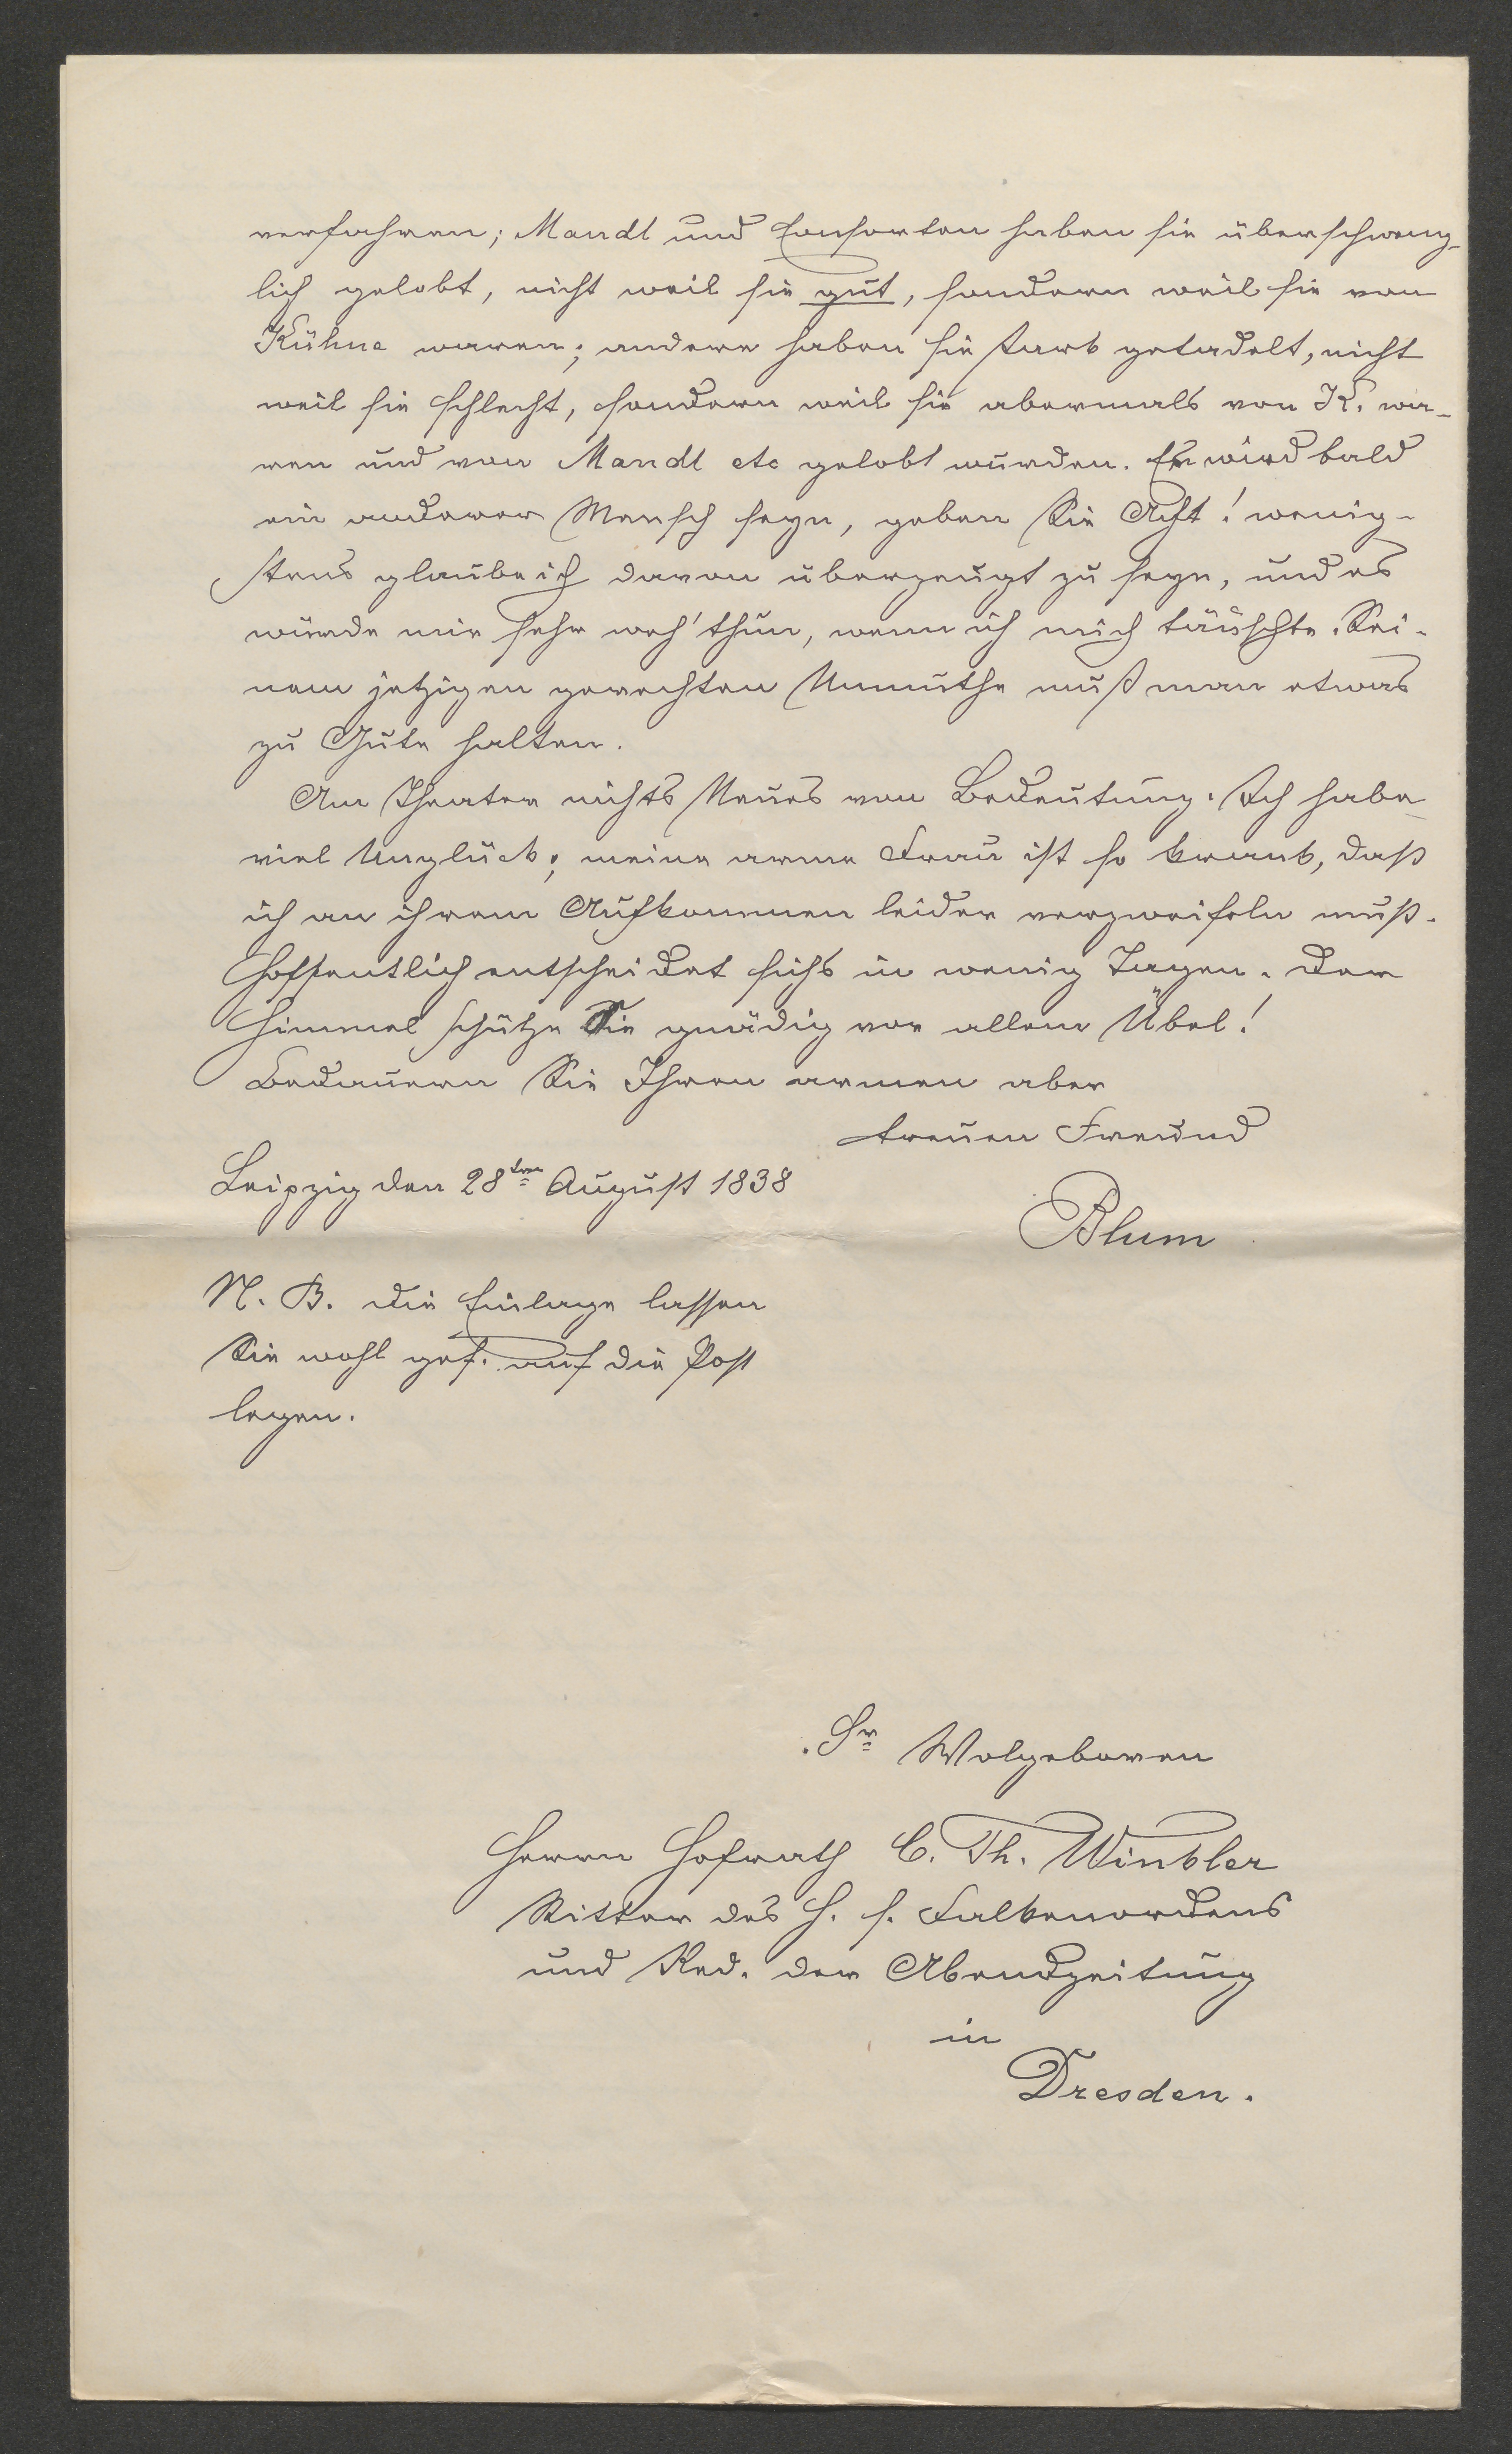 verfahren; Mandl und Consorten haben sie überschweng-
lich gelobt, nicht weil sie gut, sondern weil sie von
Kühne waren; andere haben sie stark getadelt, nicht
weil sie schlecht, sondern weil sie abermals von K. wa-
ren und von Mandl etc gelobt wurden. Er wird bald
ein anderer Mensch seyn, geben Sie Acht! wenig-
stens glaube ich davon überzeugt zu seyn, und es
würde mir sehr weh' thun, wenn ich mich täuschte. Sei-
nem jetzigen gerechten Unmuthe muß man etwas
zu Gute halten.
Am Theater nichts Neues von Bedeutung. Ich habe
viel Unglück; meine arme Frau ist so krank, daß
ich an ihrem Aufkommen leider verzweifeln muß.
Hoffentlich entscheidet sichs in wenig Tagen. Der
Himmel schütze Sie gnädig vor allem Übel!
Bedauern Sie Ihren armen aber
treuen Freund
Leipzig den 28ten August 1838
Blum
N. B. Die Einlage lassen
Sie wohl gef. auf die Post
legen.
Sr Wolgeboren
Herrn Hofrath C. Th. Winkler
Ritter des H. s. Falkenordens
und Red. der Abendzeitung
in
Dresden.